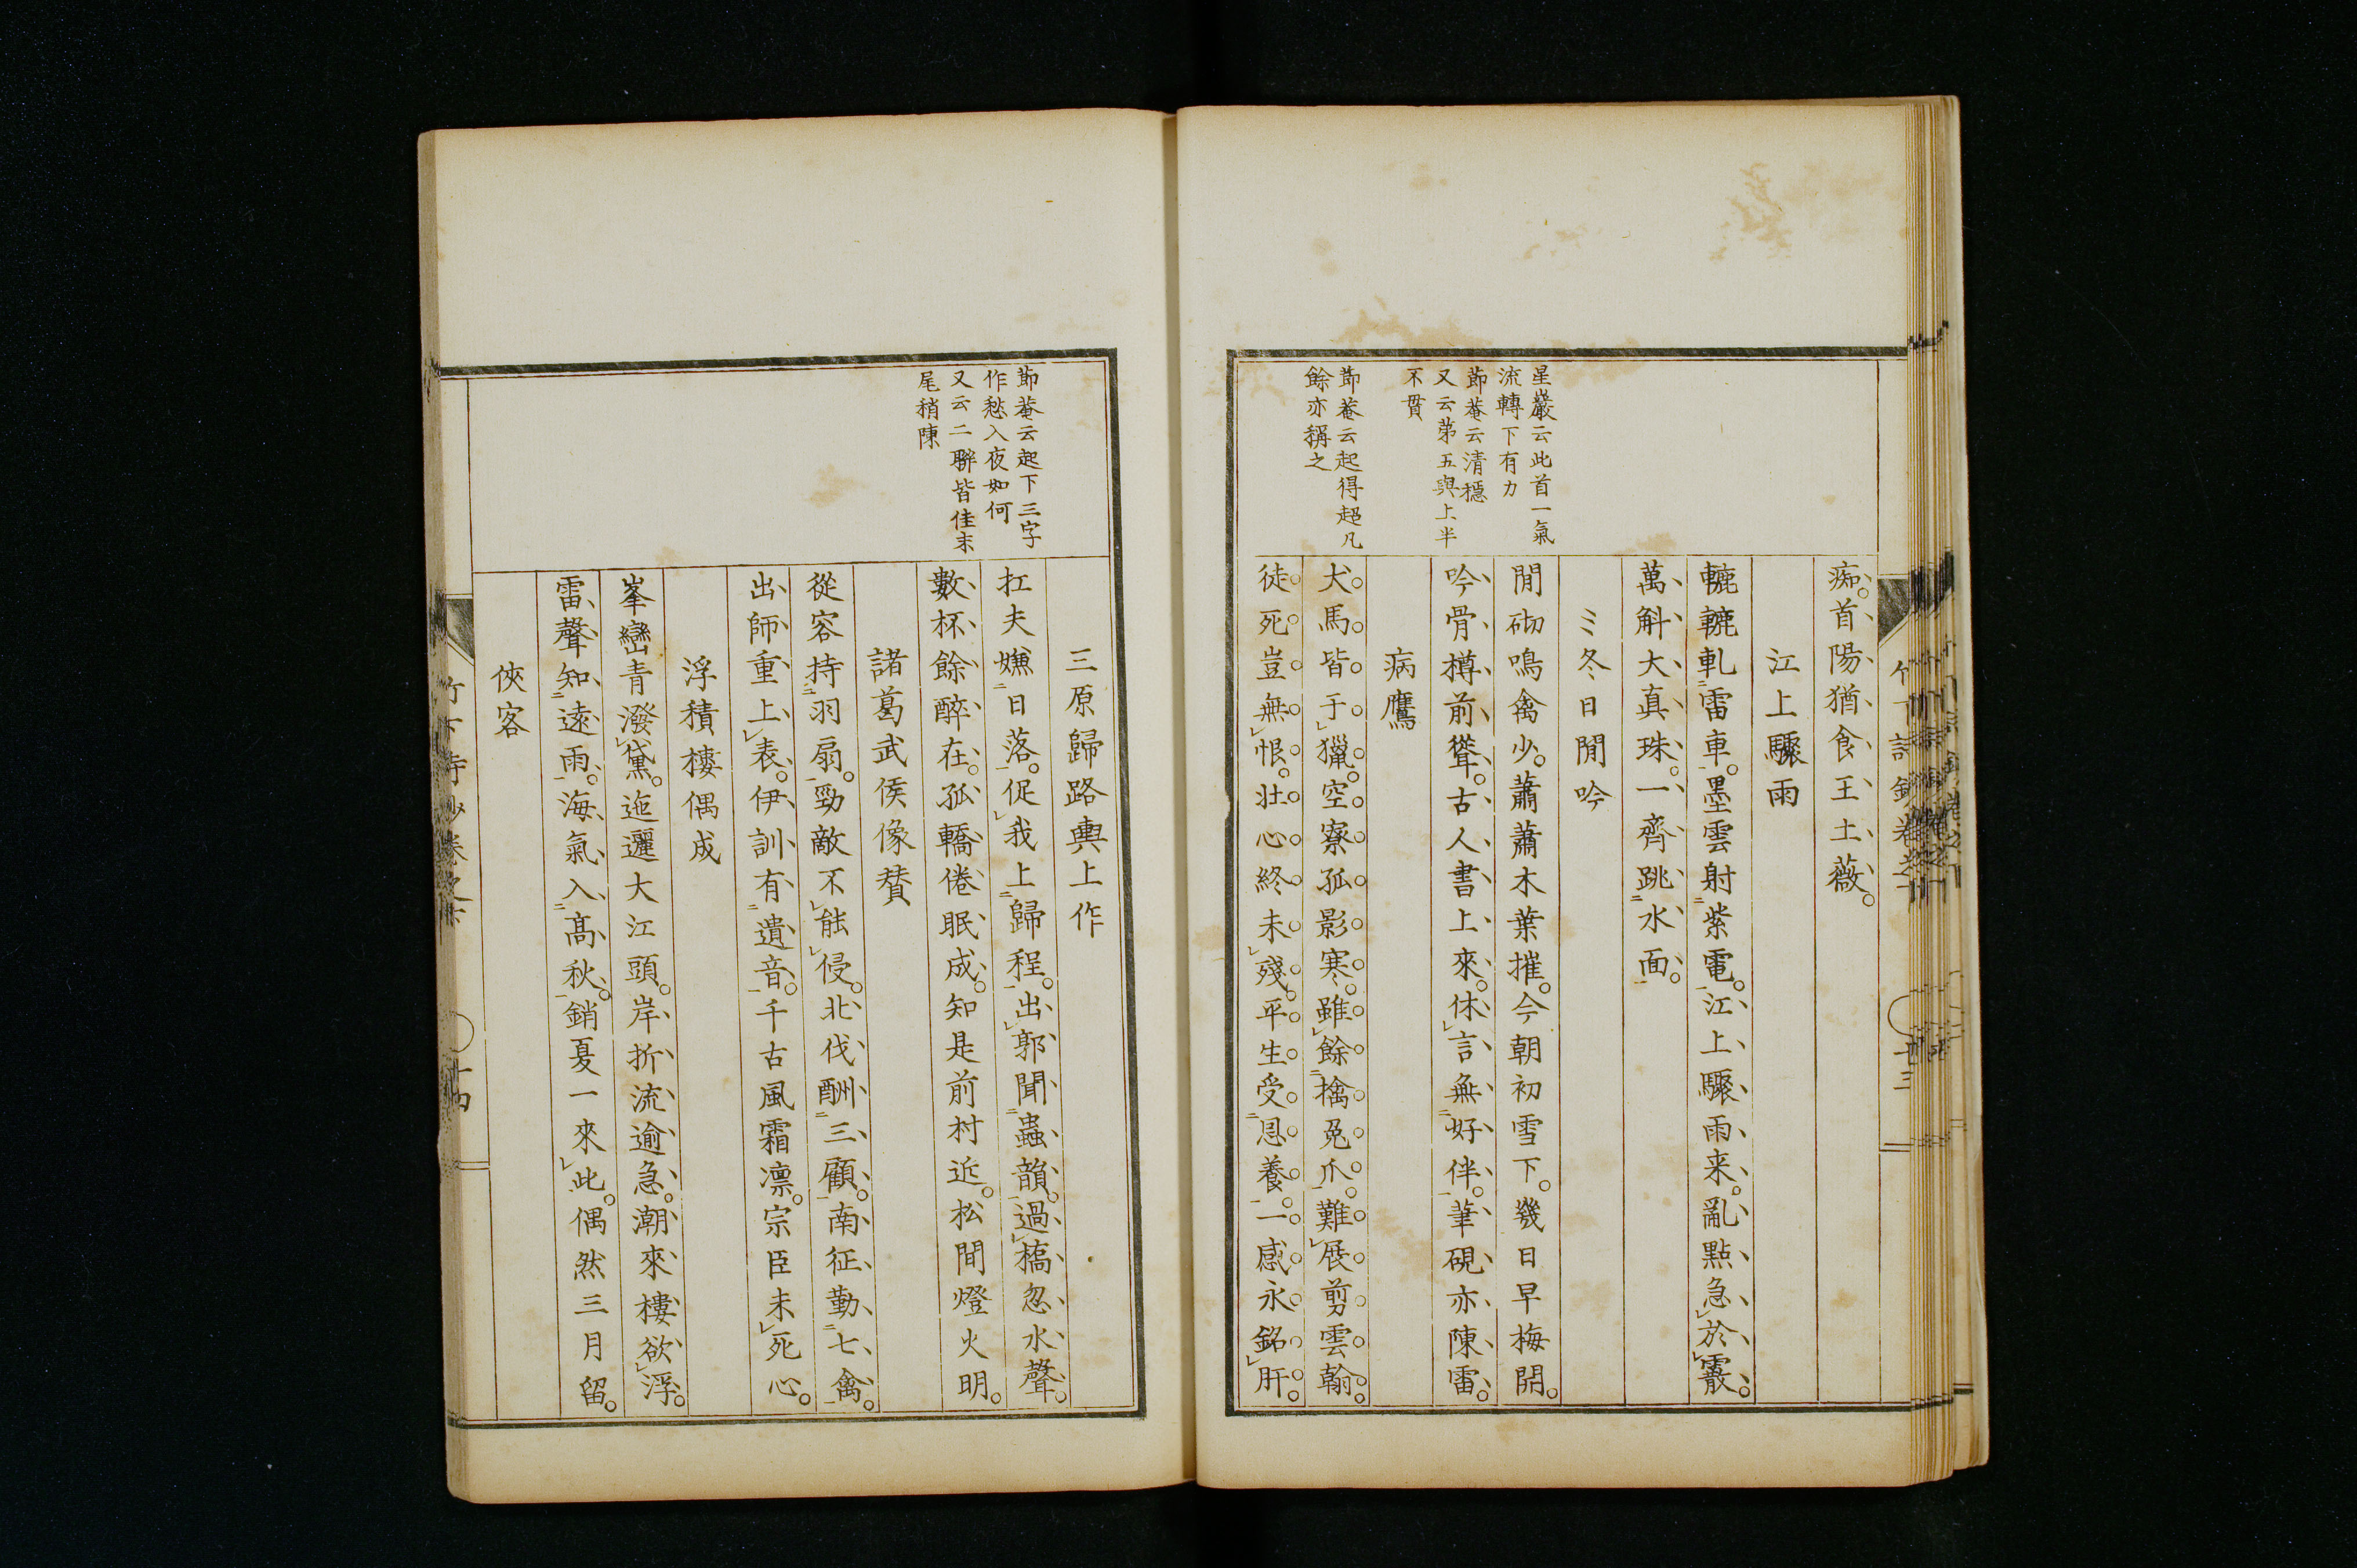 星巖云此首一氣
流轉下有力
節菴云清穩
又云第五與上半
不貫
節菴云起得超凡
餘亦稱之
痴。首陽猶食王土薇。
江上驟雨
轆轆軋雷車。墨雲射紫電。江上驟雨来。亂點急於霰。
萬斛大真珠。一齊跳水面。
冬日閒吟
閒砌鳴禽少。蕭蕭木葉摧。今朝初雪下。幾日早梅開。
吟骨樽前聳。古人書上來。休言無好伴。筆硯亦陳雷。
病鷹
犬馬皆于獵。空寮孤影寒。雖餘擒兔爪。難展剪雲翰。
徒死豈無恨。壯心終未殘。平生受恩養。一感永銘肝。
節菴云起下三字
作愁入夜如何
又云二聯皆佳末
尾稍陳
三原歸路輿上作
扛夫嫌日落。促我上歸程。出郭聞蟲韻。過橋忽水聲。
數杯餘醉在。孤轎倦眠成。知是前村近。松間燈火明。
諸葛武侯像贊
從容持羽扇。勁敵不能侵。北伐酬三顧。南征勤七禽。
出師重上表。伊訓有遺音。千古風霜凛。宗臣未死心。
浮積樓偶成
峯巒青潑黛。迤邐大江頭。岸折流逾急。潮來樓欲浮。
雷聲知遠雨。海氣入高秋。銷夏一來此。偶然三月留。
俠客
竹下詩鈔卷之下
十四